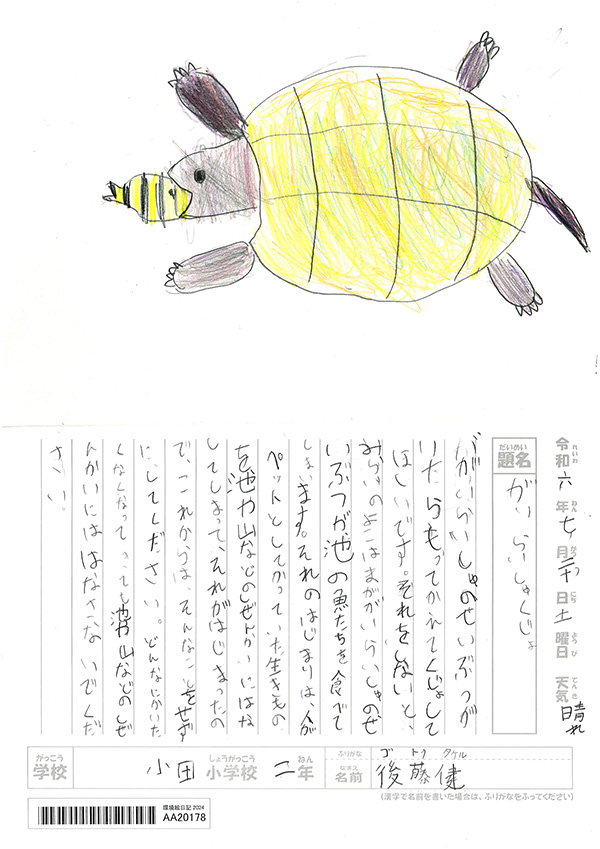 令和六年七月二十日土曜日 天気晴れ
れいわ ねん がつ にち ようび てんき
だいめい
題名 がいらいしゅくじょ
がいらいしゅのせいぶつが
いたらもってかえてくじょして
ほしいです。それをしないと、
みらいのよこはまががいらいしゅのせ
いぶつが池の魚たちを食べて
しまいます。それのはじまりは、人が
ペットとしてかっていた生きもの
を池や山などのしぜんかいにはな
してしまって、それがはじまったの
で、これからは、そんなことをせず
に、してください。どんなにかいた
くなくなって ても池や山などのしぜ
んかいにははなさないでくだ
さい。
がっこう しょうがっこう ねん ふりがな ゴトウ タケル
学校 小田小学校 二年 なまえ 名前 後藤健
(漢字で名前を書いた場合は、ふりがなをふってください)
環境絵日記 2024
AA20178